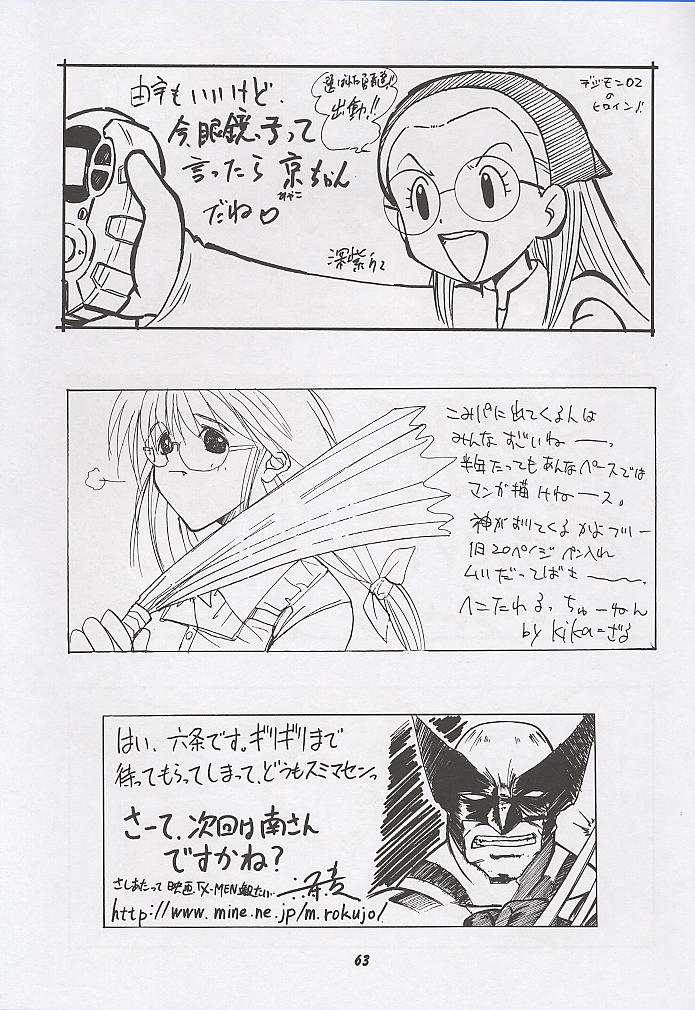 由宇もいいけど、
今眼鏡っ子って
言ったら京ちゃん
みやこ
だね♡
選ばれた子供達!!
出動!!
デジモン02
の
ヒロイン!!
深紫
こみパに出てくる人は
みんなすごいねー。
半年たってもあんなペースでは
マンガ描けねース。
神がおりてくるかよフリー
1日20ページペン入れ
ムリだってばもー〜。
へこたれるっちゅーねん
by kikaーざる
はい、六条です。ギリギリまで
待ってもらってしまって、どうもスミマセンっ
さーて、次回は南さん
ですかね?
さしあたって映画「X-MEN観たい…
http://www.mine.ne.jp/m.rokujo/
63